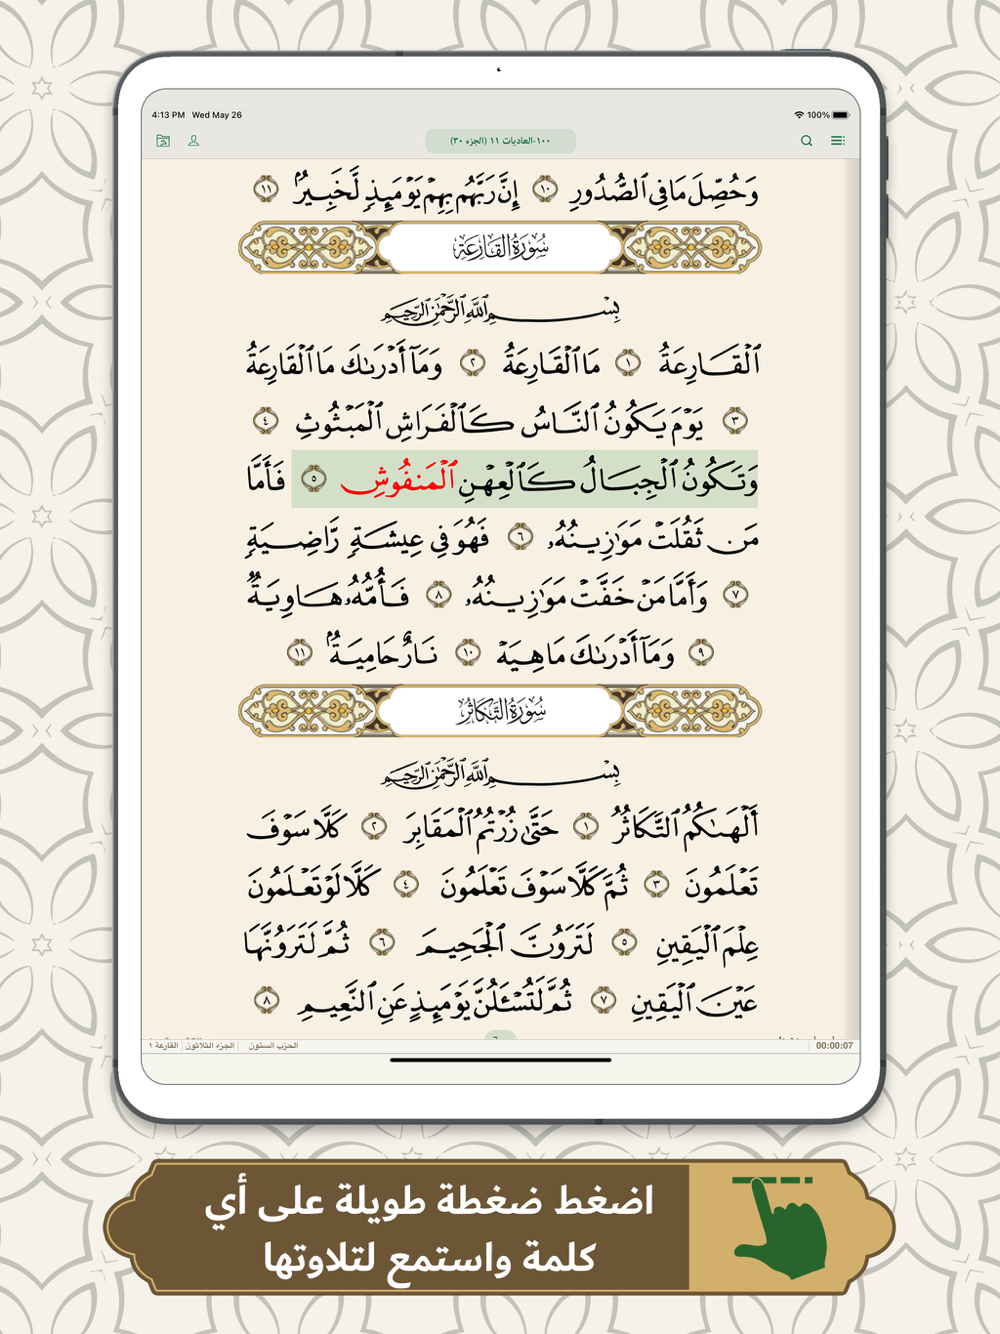 4:13 PM Wed May 26
100%
١٠٠-العاديات ١١ (الجزء ٣٠)
وَحُصِّلَ مَا فِي ٱلصُّدُورِ ١٠ إِنَّ رَبَّهُم بِهِمْ يَوْمَئِذٍ لَّخَبِيرٌۢ ١١
سُورَةُ القَارِعَة
بِسْمِ ٱللَّهِ ٱلرَّحْمَٰنِ ٱلرَّحِيمِ
ٱلْقَارِعَةُ ١ مَا ٱلْقَارِعَةُ ٢ وَمَآ أَدْرَىٰكَ مَا ٱلْقَارِعَةُ
٣ يَوْمَ يَكُونُ ٱلنَّاسُ كَٱلْفَرَاشِ ٱلْمَبْثُوثِ ٤
وَتَكُونُ ٱلْجِبَالُ كَٱلْعِهْنِ ٱلْمَنفُوشِ ٥ فَأَمَّا
مَن ثَقُلَتْ مَوَٰزِينُهُۥ ٦ فَهُوَ فِي عِيشَةٍ رَّاضِيَةٍ
٧ وَأَمَّا مَنْ خَفَّتْ مَوَٰزِينُهُۥ ٨ فَأُمُّهُۥ هَاوِيَةٌ
٩ وَمَآ أَدْرَىٰكَ مَا هِيَهْ ١٠ نَارٌ حَامِيَةٌۢ ١١
سُورَةُ التَّكَاثُر
بِسْمِ ٱللَّهِ ٱلرَّحْمَٰنِ ٱلرَّحِيمِ
أَلْهَىٰكُمُ ٱلتَّكَاثُرُ ١ حَتَّىٰ زُرْتُمُ ٱلْمَقَابِرَ ٢ كَلَّا سَوْفَ
تَعْلَمُونَ ٣ ثُمَّ كَلَّا سَوْفَ تَعْلَمُونَ ٤ كَلَّا لَوْ تَعْلَمُونَ
عِلْمَ ٱلْيَقِينِ ٥ لَتَرَوُنَّ ٱلْجَحِيمَ ٦ ثُمَّ لَتَرَوُنَّهَا
عَيْنَ ٱلْيَقِينِ ٧ ثُمَّ لَتُسْـَٔلُنَّ يَوْمَئِذٍ عَنِ ٱلنَّعِيمِ ٨
00:00:07 الحزب الستون الجزء الثلاثون القارعة ١
اضغط ضغطة طويلة على أي
كلمة واستمع لتلاوتها